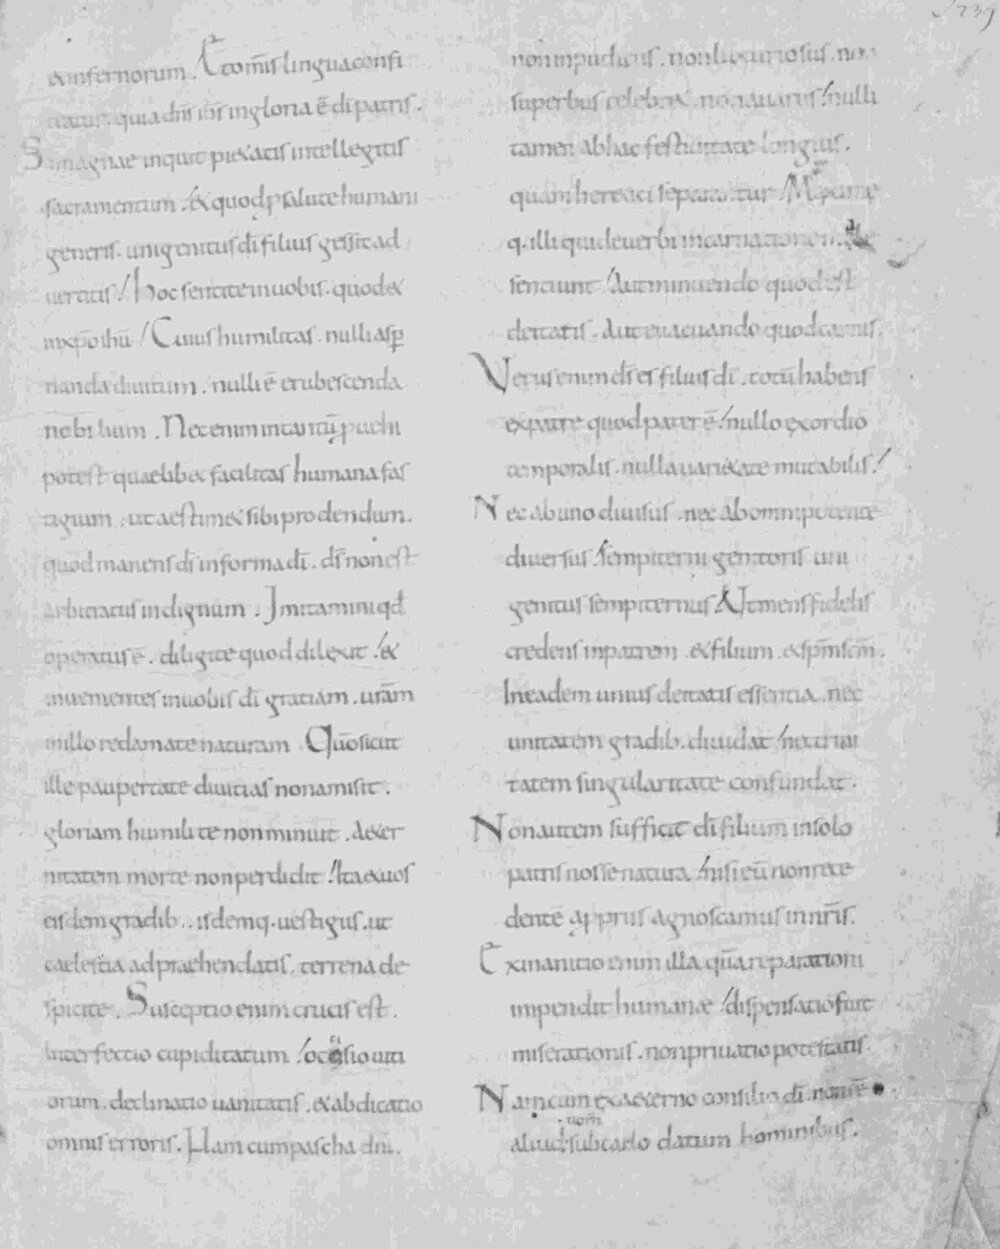 239
& infernorum. Et om̄is lingua confi
teatur. quia dn̄s ihs̄ in gloria ē dī patris.
Si magnae inquit pi&atis intellegitis
sacramentum. / & quod p salute humani
generis. unigenitus dī filius gessit ad
uertitis / hoc sentite in uobis. quod &
in xp̄o ihū / Cuius humilitas. nulli asp̄
nanda diuitum. nulli ē erubescenda
nobilium. Nec enim in tantū puehi
potest quaelib& facilitas humana fas
tigium. ut aestim& sibi prodendum.
quod manens dī in forma dī. dī non est
arbitratus indignum. Imitamini qd̄
operatus ē. diligite quod dilexit. / &
inuenientes in uobis dī gratiam. urām
in illo redamate naturam. Qūo sicut
ille paupertate diuitias non amisit.
gloriam humilite non minuit. aeter
nitatem morte non perdidit / Ita & uos
eisdem gradib.. isdemq. uestigiis. ut
caelestia adpraehendatis. terrena de
spicite. Susceptio enim crucis est.
Interfectio cupiditatum / occasio uiti
orum. declinatio uanitatis. & abdicatio
omnis erroris. Nam cum pascha dnī.
non inpudicus. non luxuriosus. non
superbus celebr&. non auarus / nulli
tamen ab hac festiuitate longius.
quam heretici separantur / Maxime
q. illi qui de uerbi incarnatione
sentiunt / Aut minuendo quod est
deitatis. Aut euacuando quod carnis.
Verus enim dī es filius dī. totū habens
ex patre quod pater ē / nullo exordio
temporalis. nulla uari&ate mutabilis. /
Nec ab uno diuisus. nec ab omnipotente
diuersus. sempiterni genitoris uni
genitus sempiternus / Ut mens fidelis
credens in patrem. & filium. & sp̄m scm̄.
In eadem unius deitatis essentia. nec
unitatem gradib. diuidat / nec trini
tatem singularitate confundat.
Non autem sufficit dī filium in sola
patris nosse natura / nisi eū non rece
dentē a propriis agnoscamus in nrīs.
Exinanitio enim illa quā reparationi
impendit humanae / dispensatio fuit
miserationis. non priuatio potestatis.
Nam cum ex aeterno consilio dī. non sē
nom̄
aliud sub caelo datum hominibus.